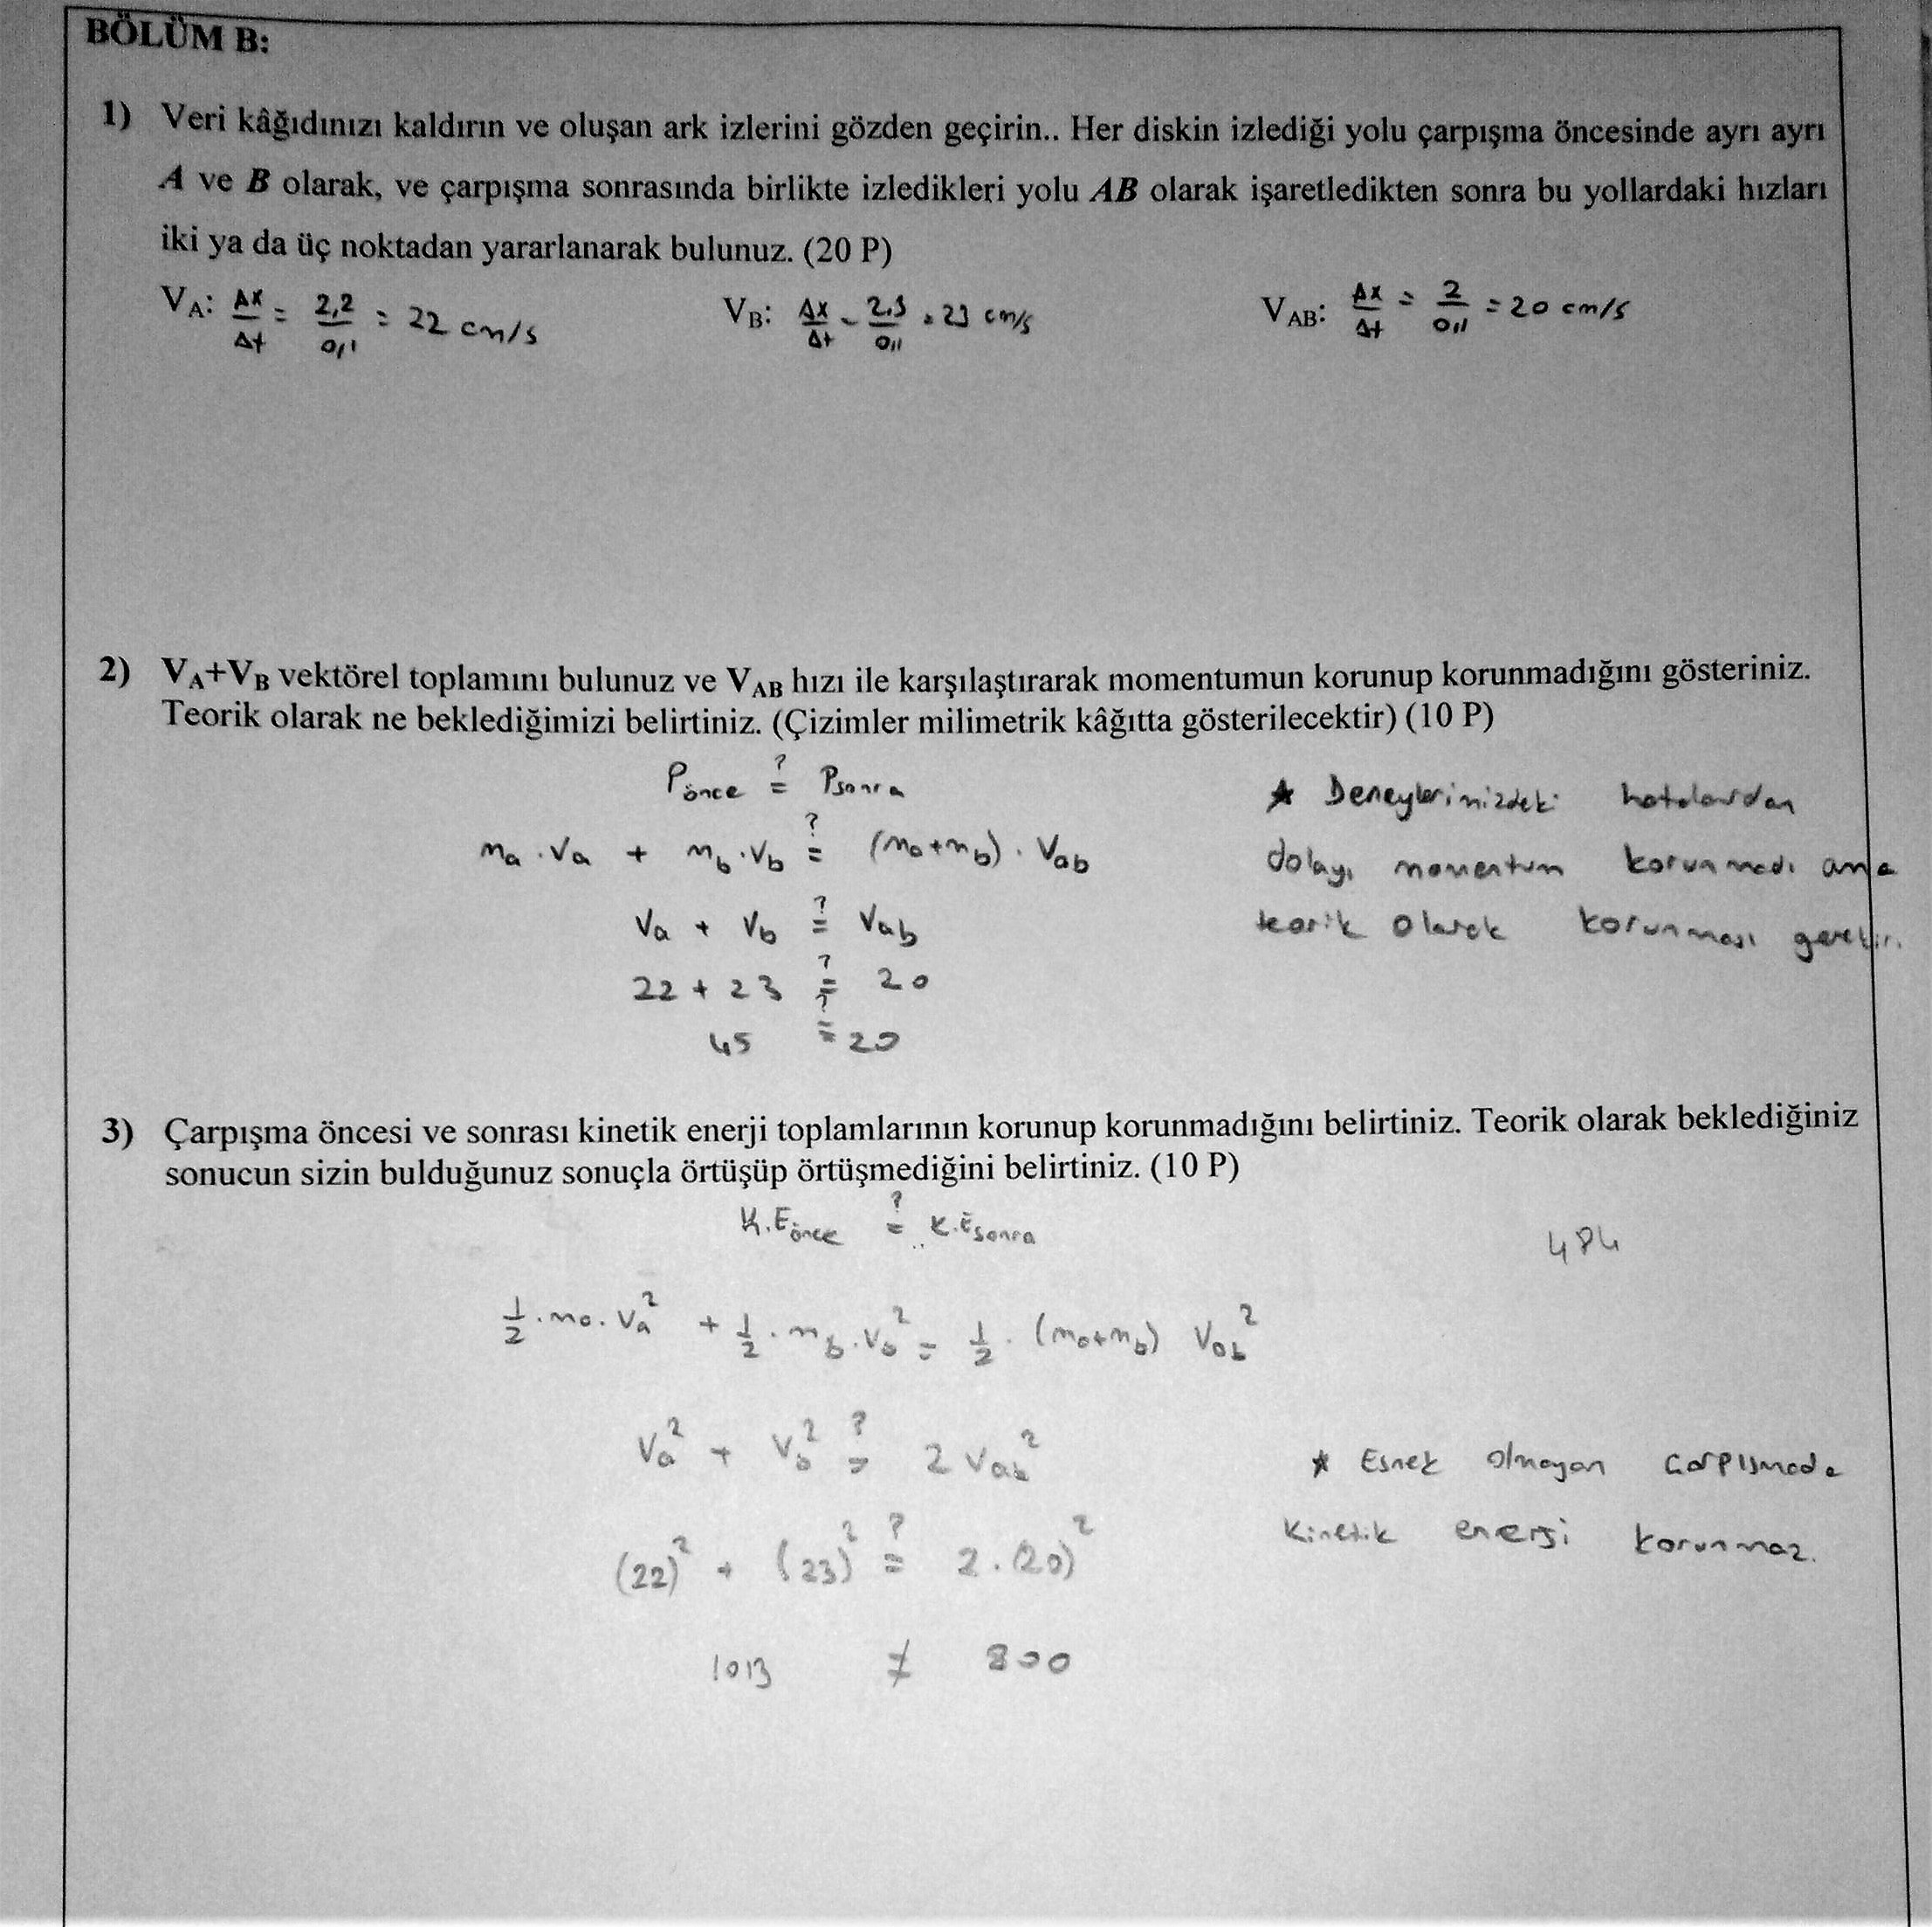 BÖLÜM B:
1) Veri kâğıdınızı kaldırın ve oluşan ark izlerini gözden geçirin.. Her diskin izlediği yolu çarpışma öncesinde ayrı ayrı
A ve B olarak, ve çarpışma sonrasında birlikte izledikleri yolu AB olarak işaretledikten sonra bu yollardaki hızları
iki ya da üç noktadan yararlanarak bulunuz. (20 P)
V_A: Δx/Δt = 2,2/0,1 = 22 cm/s V_B: Δx/Δt = 2,3/0,1 = 23 cm/s V_AB: Δx/Δt = 2/0,1 = 20 cm/s
2) V_A+V_B vektörel toplamını bulunuz ve V_AB hızı ile karşılaştırarak momentumun korunup korunmadığını gösteriniz.
Teorik olarak ne beklediğimizi belirtiniz. (Çizimler milimetrik kâğıtta gösterilecektir) (10 P)
Pönce ≟ Psonra
ma . Va + mb . Vb ≟ (ma+mb) . Vab
Va + Vb ≟ Vab
22 + 23 ≟ 20
45 ≟ 20
★ Deneylerimizdeki hatalardan
dolayı momentum korunmadı ama
teorik olarak korunması gerekir.
3) Çarpışma öncesi ve sonrası kinetik enerji toplamlarının korunup korunmadığını belirtiniz. Teorik olarak beklediğiniz
sonucun sizin bulduğunuz sonuçla örtüşüp örtüşmediğini belirtiniz. (10 P)
K.Eönce ≟ K.Esonra
484
1/2 . ma . Va² + 1/2 . mb . Vb² = 1/2 . (ma+mb) Vab²
Va² + Vb² ≟ 2 Vab²
(22)² + (23)² ≟ 2 . (20)²
1013 ≠ 800
★ Esnek olmayan çarpışmada
kinetik enerji korunmaz.